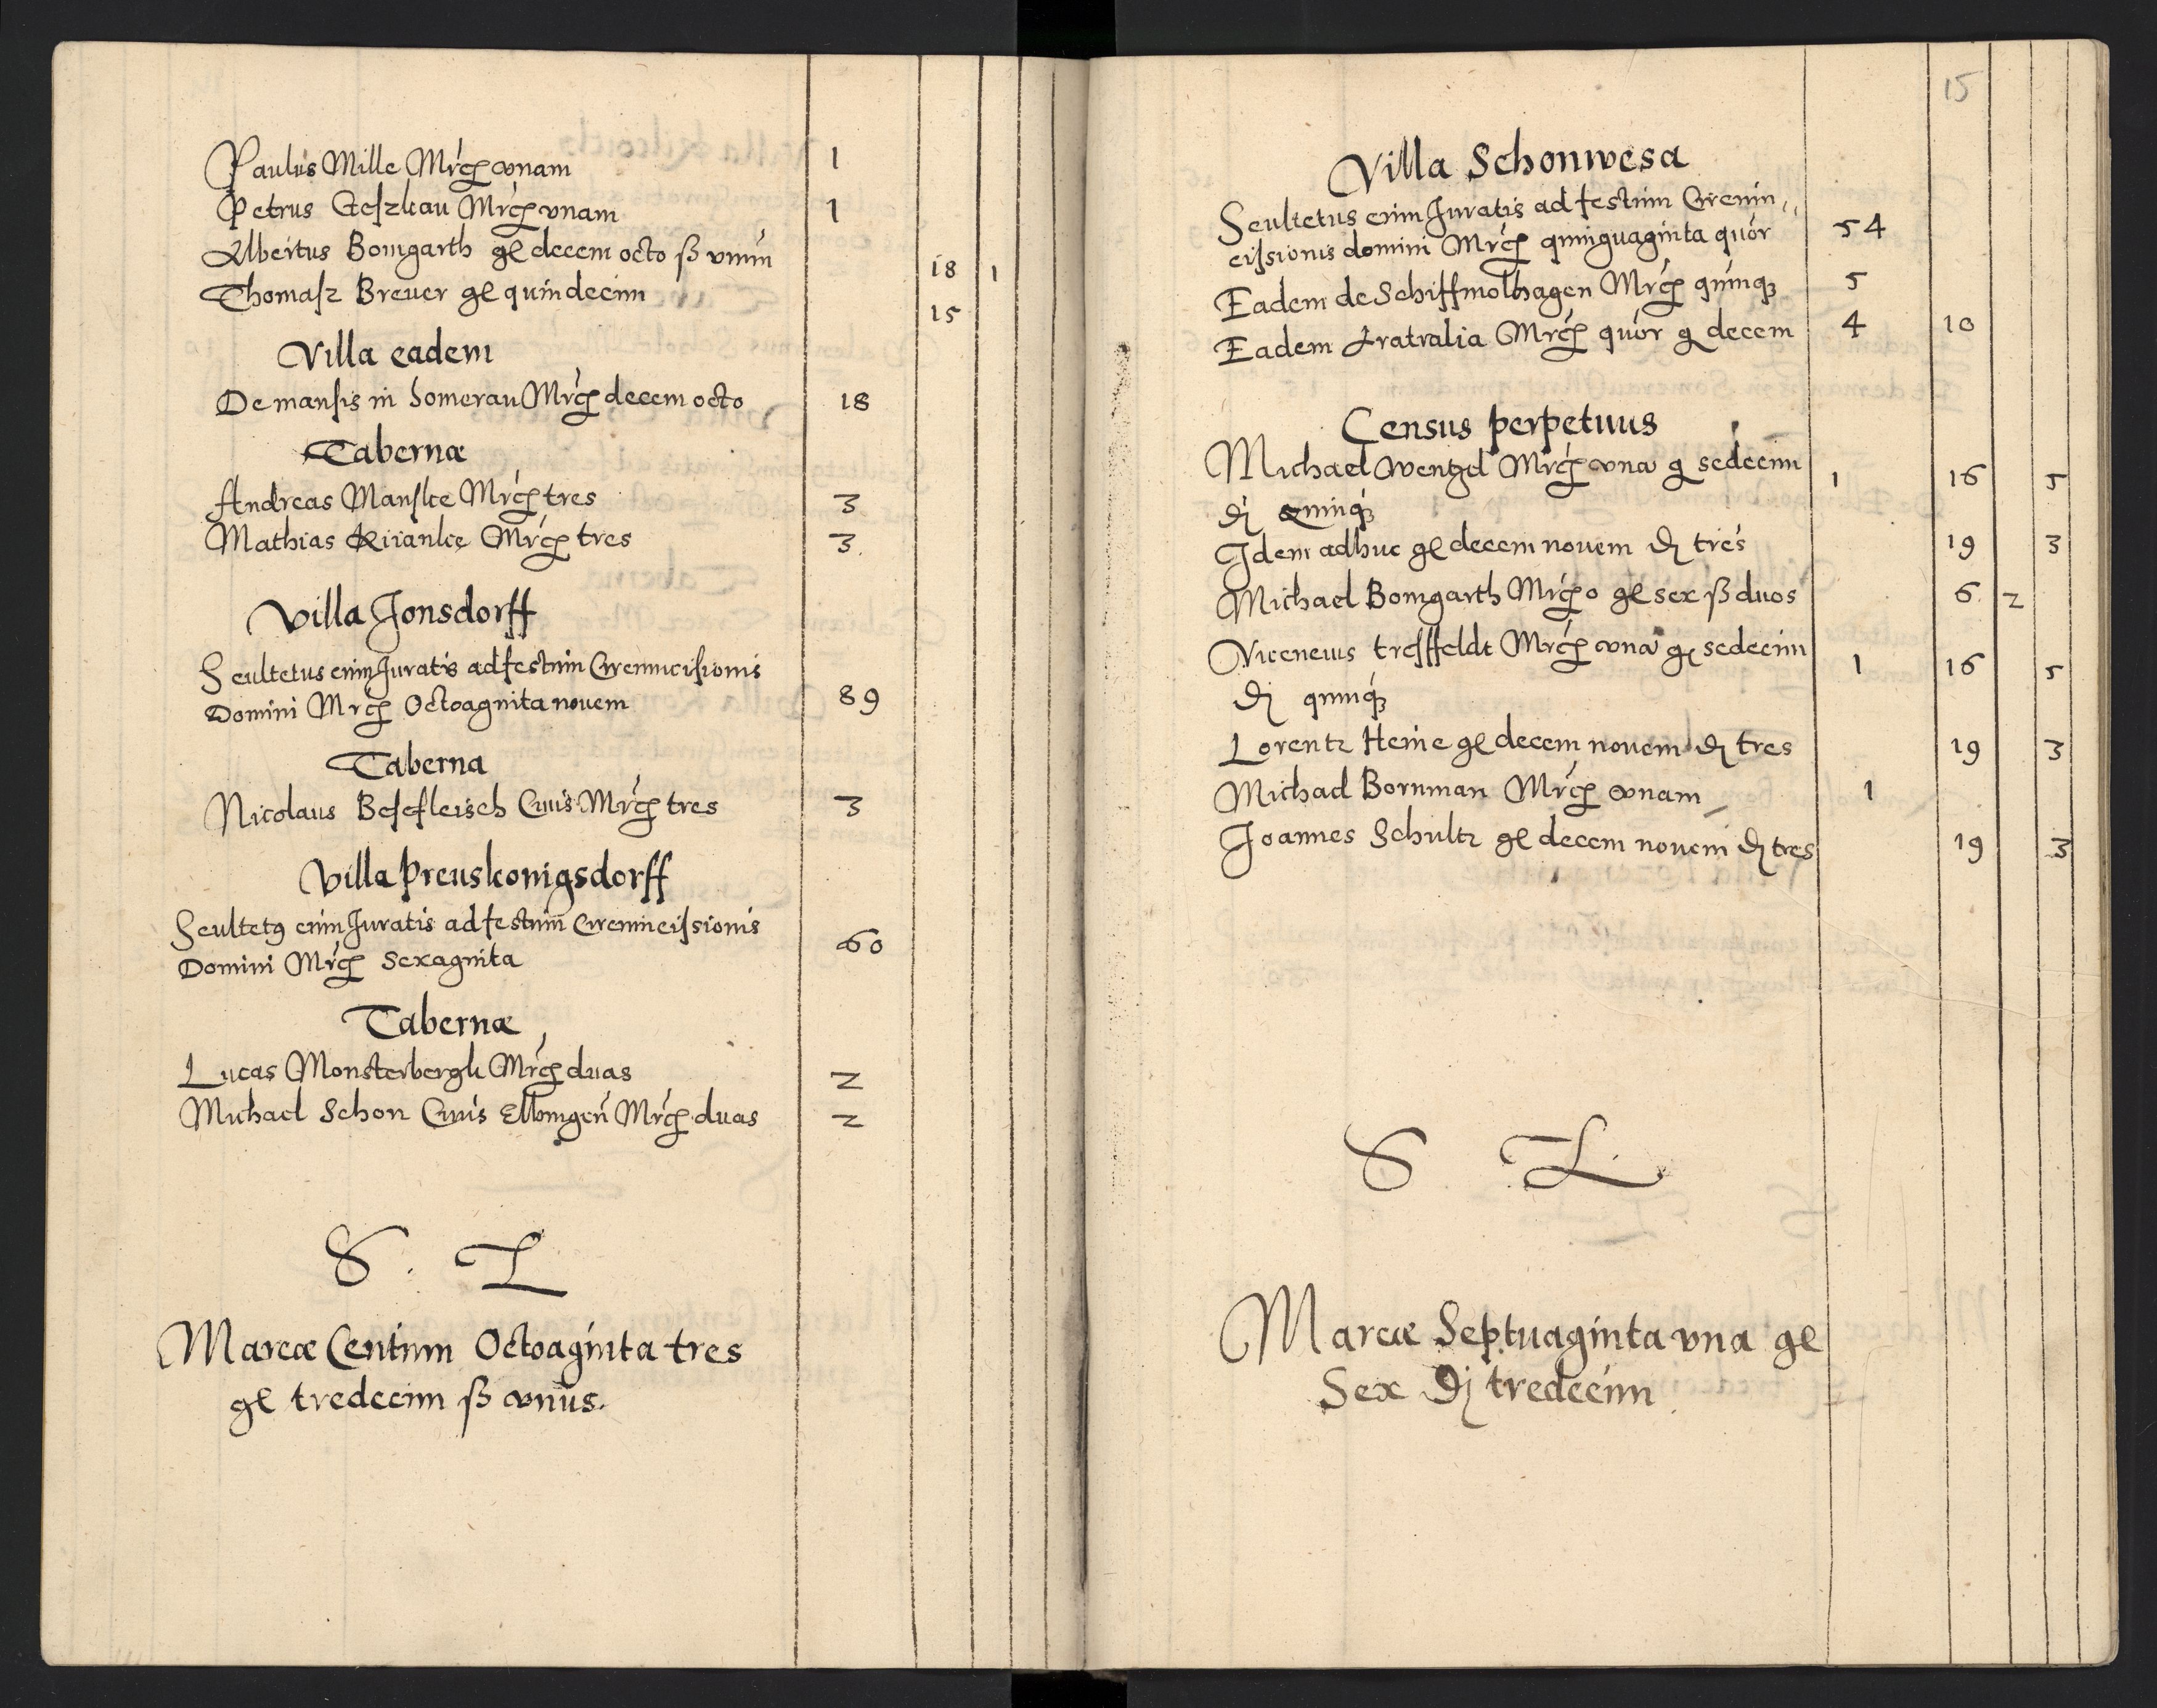 Paulus Mille Mrcẹ vnam 1
Petrus Geszkau Mrcẹ vnam 1
Albertus Bomgarth gl decem octo ß vnum 18 1
Thomasz Breuer gl quindecim 15
Villa eadem
De mansis in Somerau Mrcẹ decem octo 18
Tabernæ
Andreas Manske Mrcẹ tres 3
Mathias Mrcẹ tres 3
Villa Jonsdorff
Scultetus cum Juratis ad festum Circumcisionis
Domini Mrcẹ Octoaginta novem 89
Taberna
Nicolaus Besefleisch Civis Mrcẹ tres 3
Villa Preuskonigsdorff
Scultetꝯ cum Juratis ad festum Circumcissionis
Domini Mrcẹ Sexaginta 60
Tabernæ
Lucas Monsterbergk Mrcẹ duas 2
Michael Schon Civis Elbingen Mrcẹ duas 2
S. L
Marcæ Centum Octoaginta tres
gl tredecim ß vnus.
15
Villa Schonwesa
Scultetus cum Juratis ad festum Circum,,
cissionis domini Mrcẹ quinquaginta quor 54
Eadem de Schiffmolhagen Mrcẹ quinqꝫ 5
Eadem Pratralia Mrcẹ quor g decem 4 10
Census perpetuus
Michael Wentzel Mrcẹ vna g sedecim 1 16 5
₰ quinqꝫ
Idem adhuc gl decem novem ₰ tres 19 3
Michael Bomgarth Mrcẹ o gl sex ß duos 6 2
Vicencius tresffeldt Mrcẹ vna g sedecim 1 16 5
₰ quinqꝫ
Lorentz Heine gl decem novem ₰ tres 19 3
Michael Bornman Mrcẹ vnam 1
Joannes Schultz gl decem novem ₰ tres 19 3
S L
Marcæ Septuaginta vna gl
Sex ₰ tredecim